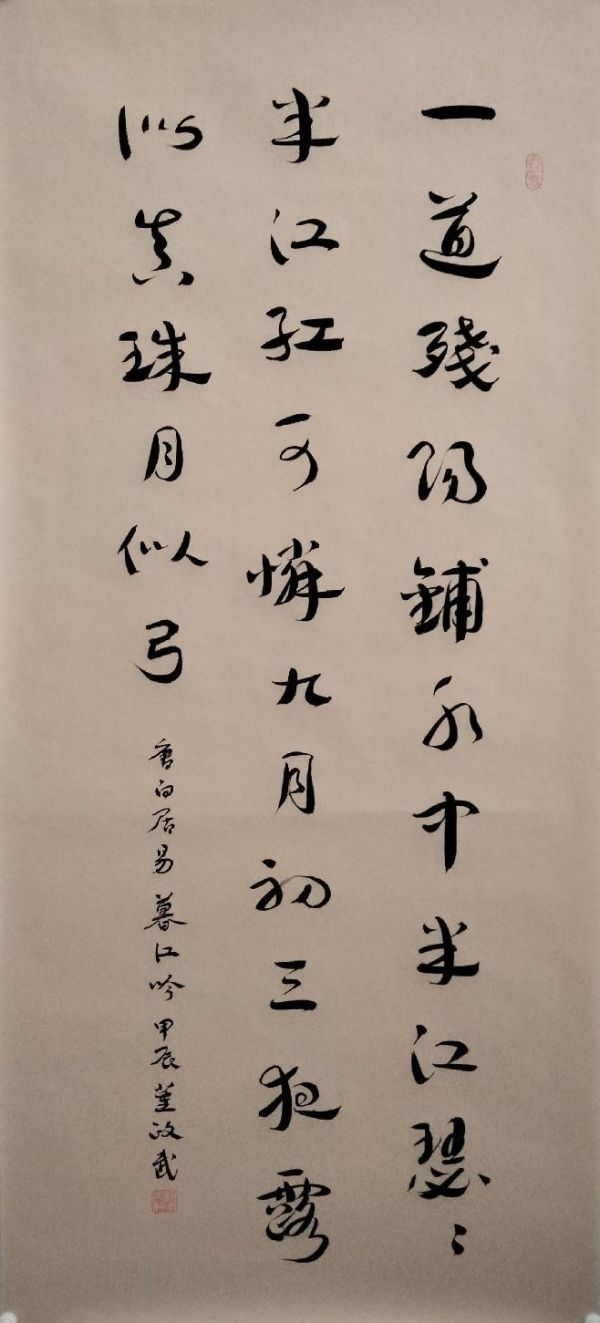 一道殘陽鋪水中半江瑟〻
半江紅可憐九月初三夜露
似真珠月似弓
唐白居易暮江吟甲辰董政武